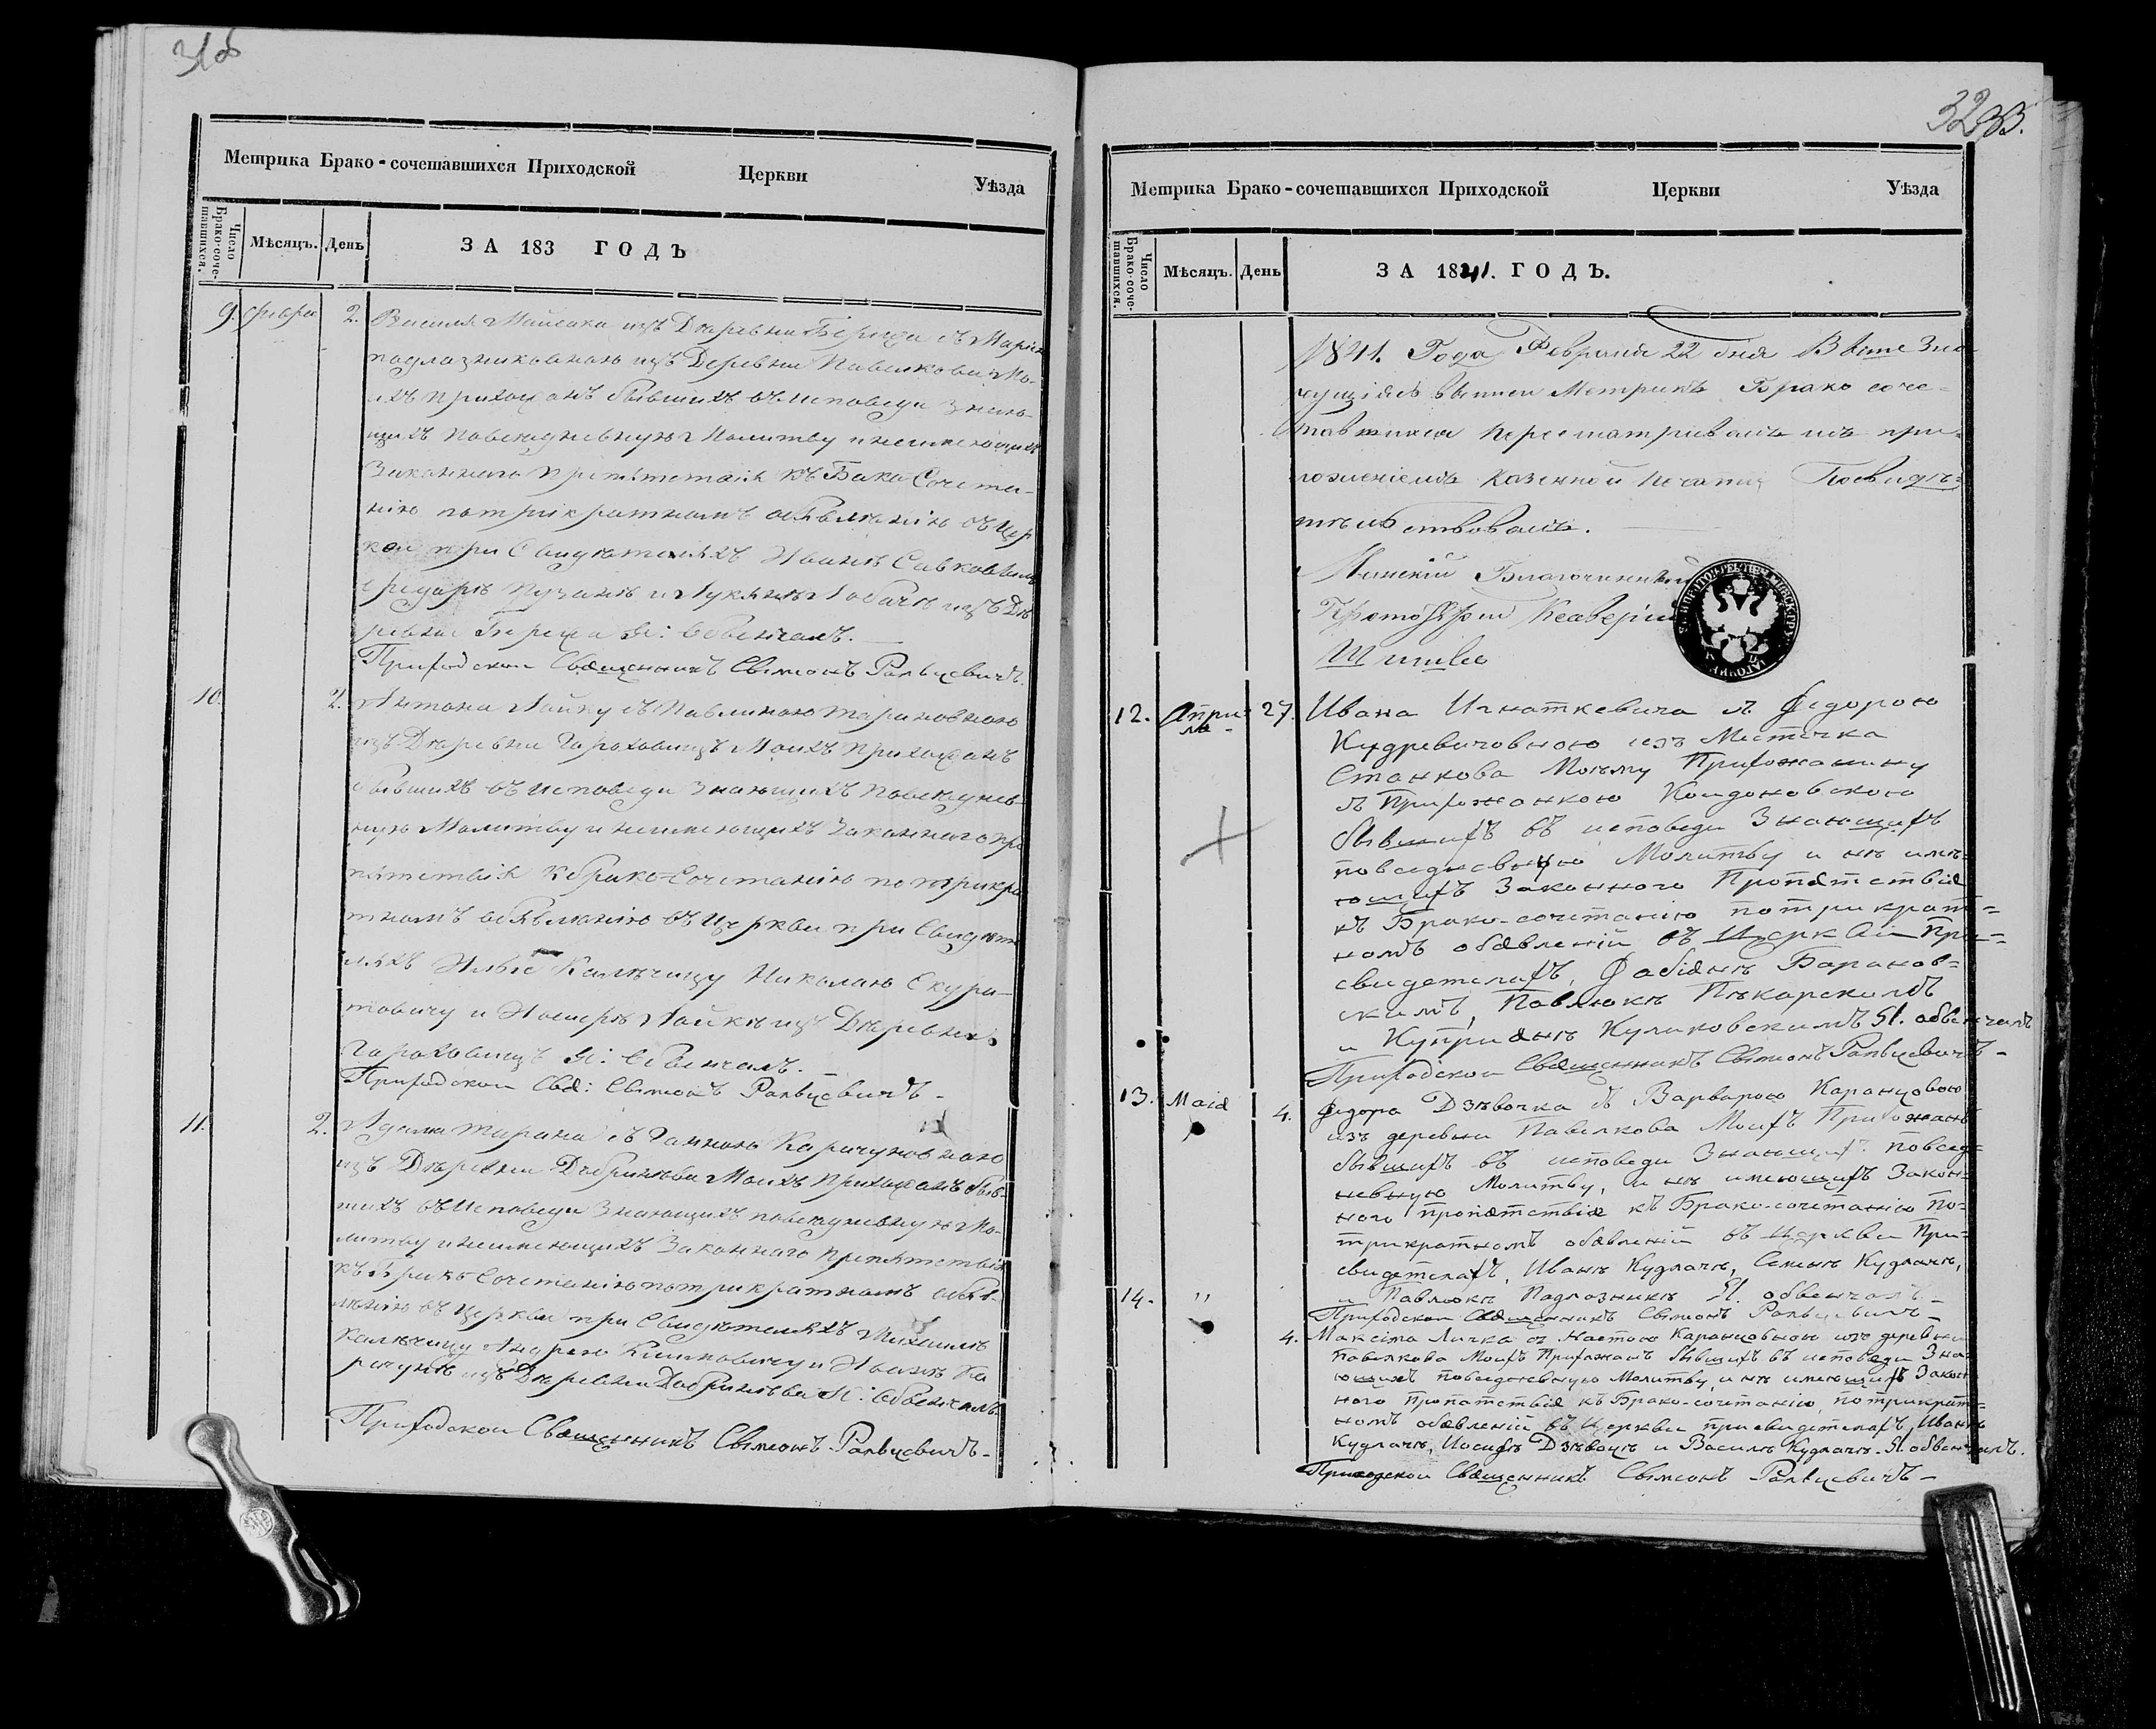 31об
Метрика Брако-сочетавшихся Приходской Церкви Уѣзда
Число Брако-соче-тавшихся.
Мѣсяцъ. День
ЗА 183 ГОДЪ
9. февра 2. Майсака изъ Деревни Береща съ Марию
изъ Деревни Павелкова Мо-
ихъ прихожанъ бывшихъ въ исповеди знаю-
щихъ повседневную Молитву и неимеющихъ
Законнаго препятствія къ Бако Сочета-
нію потрикратномъ объявленію въ Цер
кви при Свидетеляхъ Иванѣ
изъ Де
ревни Береща Я: Обвенчалъ.
Приходской Священникъ Свмеонъ Ральцевичъ
10. 2. Антона Лайку съ Павлиною
изъ Деревни Гороховищъ Моихъ прихожанъ
бывшихъ въ исповеди знающихъ повседнев-
ную Молитву и неимеющихъ Законнаго пре
пятствія к брако-Сочетанію по трикра
тномъ объявленію въ Церкви при Свидете
ляхъ Калечицу Николаю Скура-
товичу и Лайкѣ изъ Деревни
Гороховищъ Я: Обвенчалъ.
Приходской Свя: Свмеонъ Ральцевичъ -
11. 2. Адама Тарана съ Ганною Карачуновною
изъ Деревни Добринева Моихъ Прихожанъ быв-
шихъ въ Исповеди Знающихъ повседневную Мо-
литву и неимеющихъ Законнаго препятствія
къ Брако Сочетанію потрикратномъ объяв-
лению въ Церкви при Свидетеляхъ
Калечицу Андрею Климовичу и Иванѣ Ка
рачунѣ изъ Деревни Добринева Я: Обвенчалъ
Приходской Священникъ Свмеонъ Ральцевичъ -
32 33.
Метрика Брако-сочетавшихся Приходской Церкви Уѣзда
Число Брако-соче-тавшихся.
Мѣсяцъ. День
ЗА 1841. ГОДЪ.
1841. Года Февраля 22 дня Выше Зна
Метрикѣ Брако соче-
тавшихся пересматривалъ и съ при-
ложеніемъ казенной печати Посвидѣ-
тельствовалъ.
Минскій Благочинный
12. Апри- 27. Ивана Игнаткевича съ Федорою
ля - Кудревичовною изъ Местечка
Станкова Моему Прихожанину
съ Прихожанкою Койдоновскою
бывшихъ въ исповеди Знающихъ
повседневную Молитву и не имѣ-
ющихъ Законного Пропятствія
къ Брако-сочетанію потрикрат-
номъ обявленій въ Церкви При-
свидетеляхъ, Фабіянѣ Баранов-
скимъ, Павлюкѣ Пѣкарскимъ
и Купріянѣ Куликовскимъ Я. обвенчалъ
Приходской Священникъ Свмеонъ Ральцевичъ -
13. Маія 4. Федора Дзѣвочка съ Варварою Каранцовою
изъ деревни Павелкова Моихъ Прихожанъ
бывшихъ въ исповеди Знающихъ повсед-
невную Молитву, и не имеющихъ Закон-
ного пропятствія къ Брако-сочетанію По-
трикратномъ обявленій въ Церкви При-
свидетеляхъ, Иванѣ Кудлачѣ, Семенѣ Кудлачѣ,
и Павлюкѣ Падлазникѣ Я. обвенчалъ -
Приходской Священникъ Свмеонъ Ральцевичъ -
14. „ 4. Максіма Личка съ Настою Каранцовною изъ деревни
Павелкова Моихъ Прихожанъ бывшихъ въ исповеди Зна-
ющихъ повседневную Молитву, и не имеющихъ Закон
ного Пропятствія къ Брако-сочетанію, потрикрат-
номъ обявленій въ Церкви при свидетеляхъ, Иванѣ
Кудлачѣ, Иосифѣ Дзѣвочкѣ и Василѣ Кудлачѣ. Я. обвенчалъ.
Приходской Священникъ Свмеонъ Ральцевичъ -